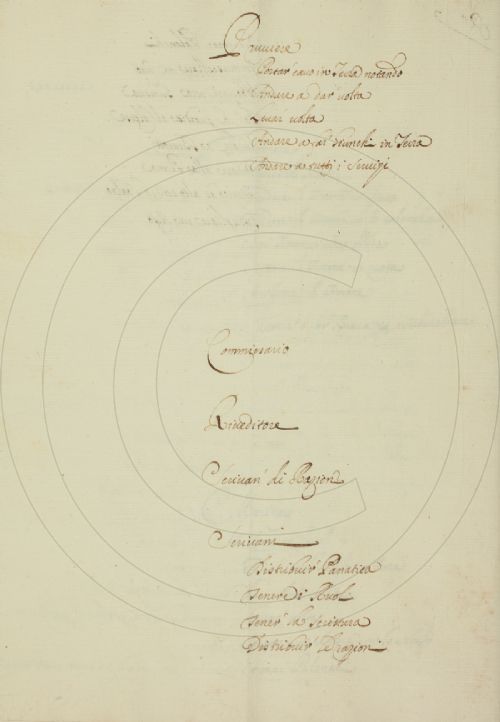 Proviere
Portar' cavo in Terra notando
Andare a dar' volta
Levar volta
Andare a in Terra
Andare a tutti i Servigi
Commissario
Riveditore
Scrivan' di Razion'
Scrivani
Distribuir' Panatica
Tenere i Ruol'
Tener' la Scrittura
Distribuir' le razioni